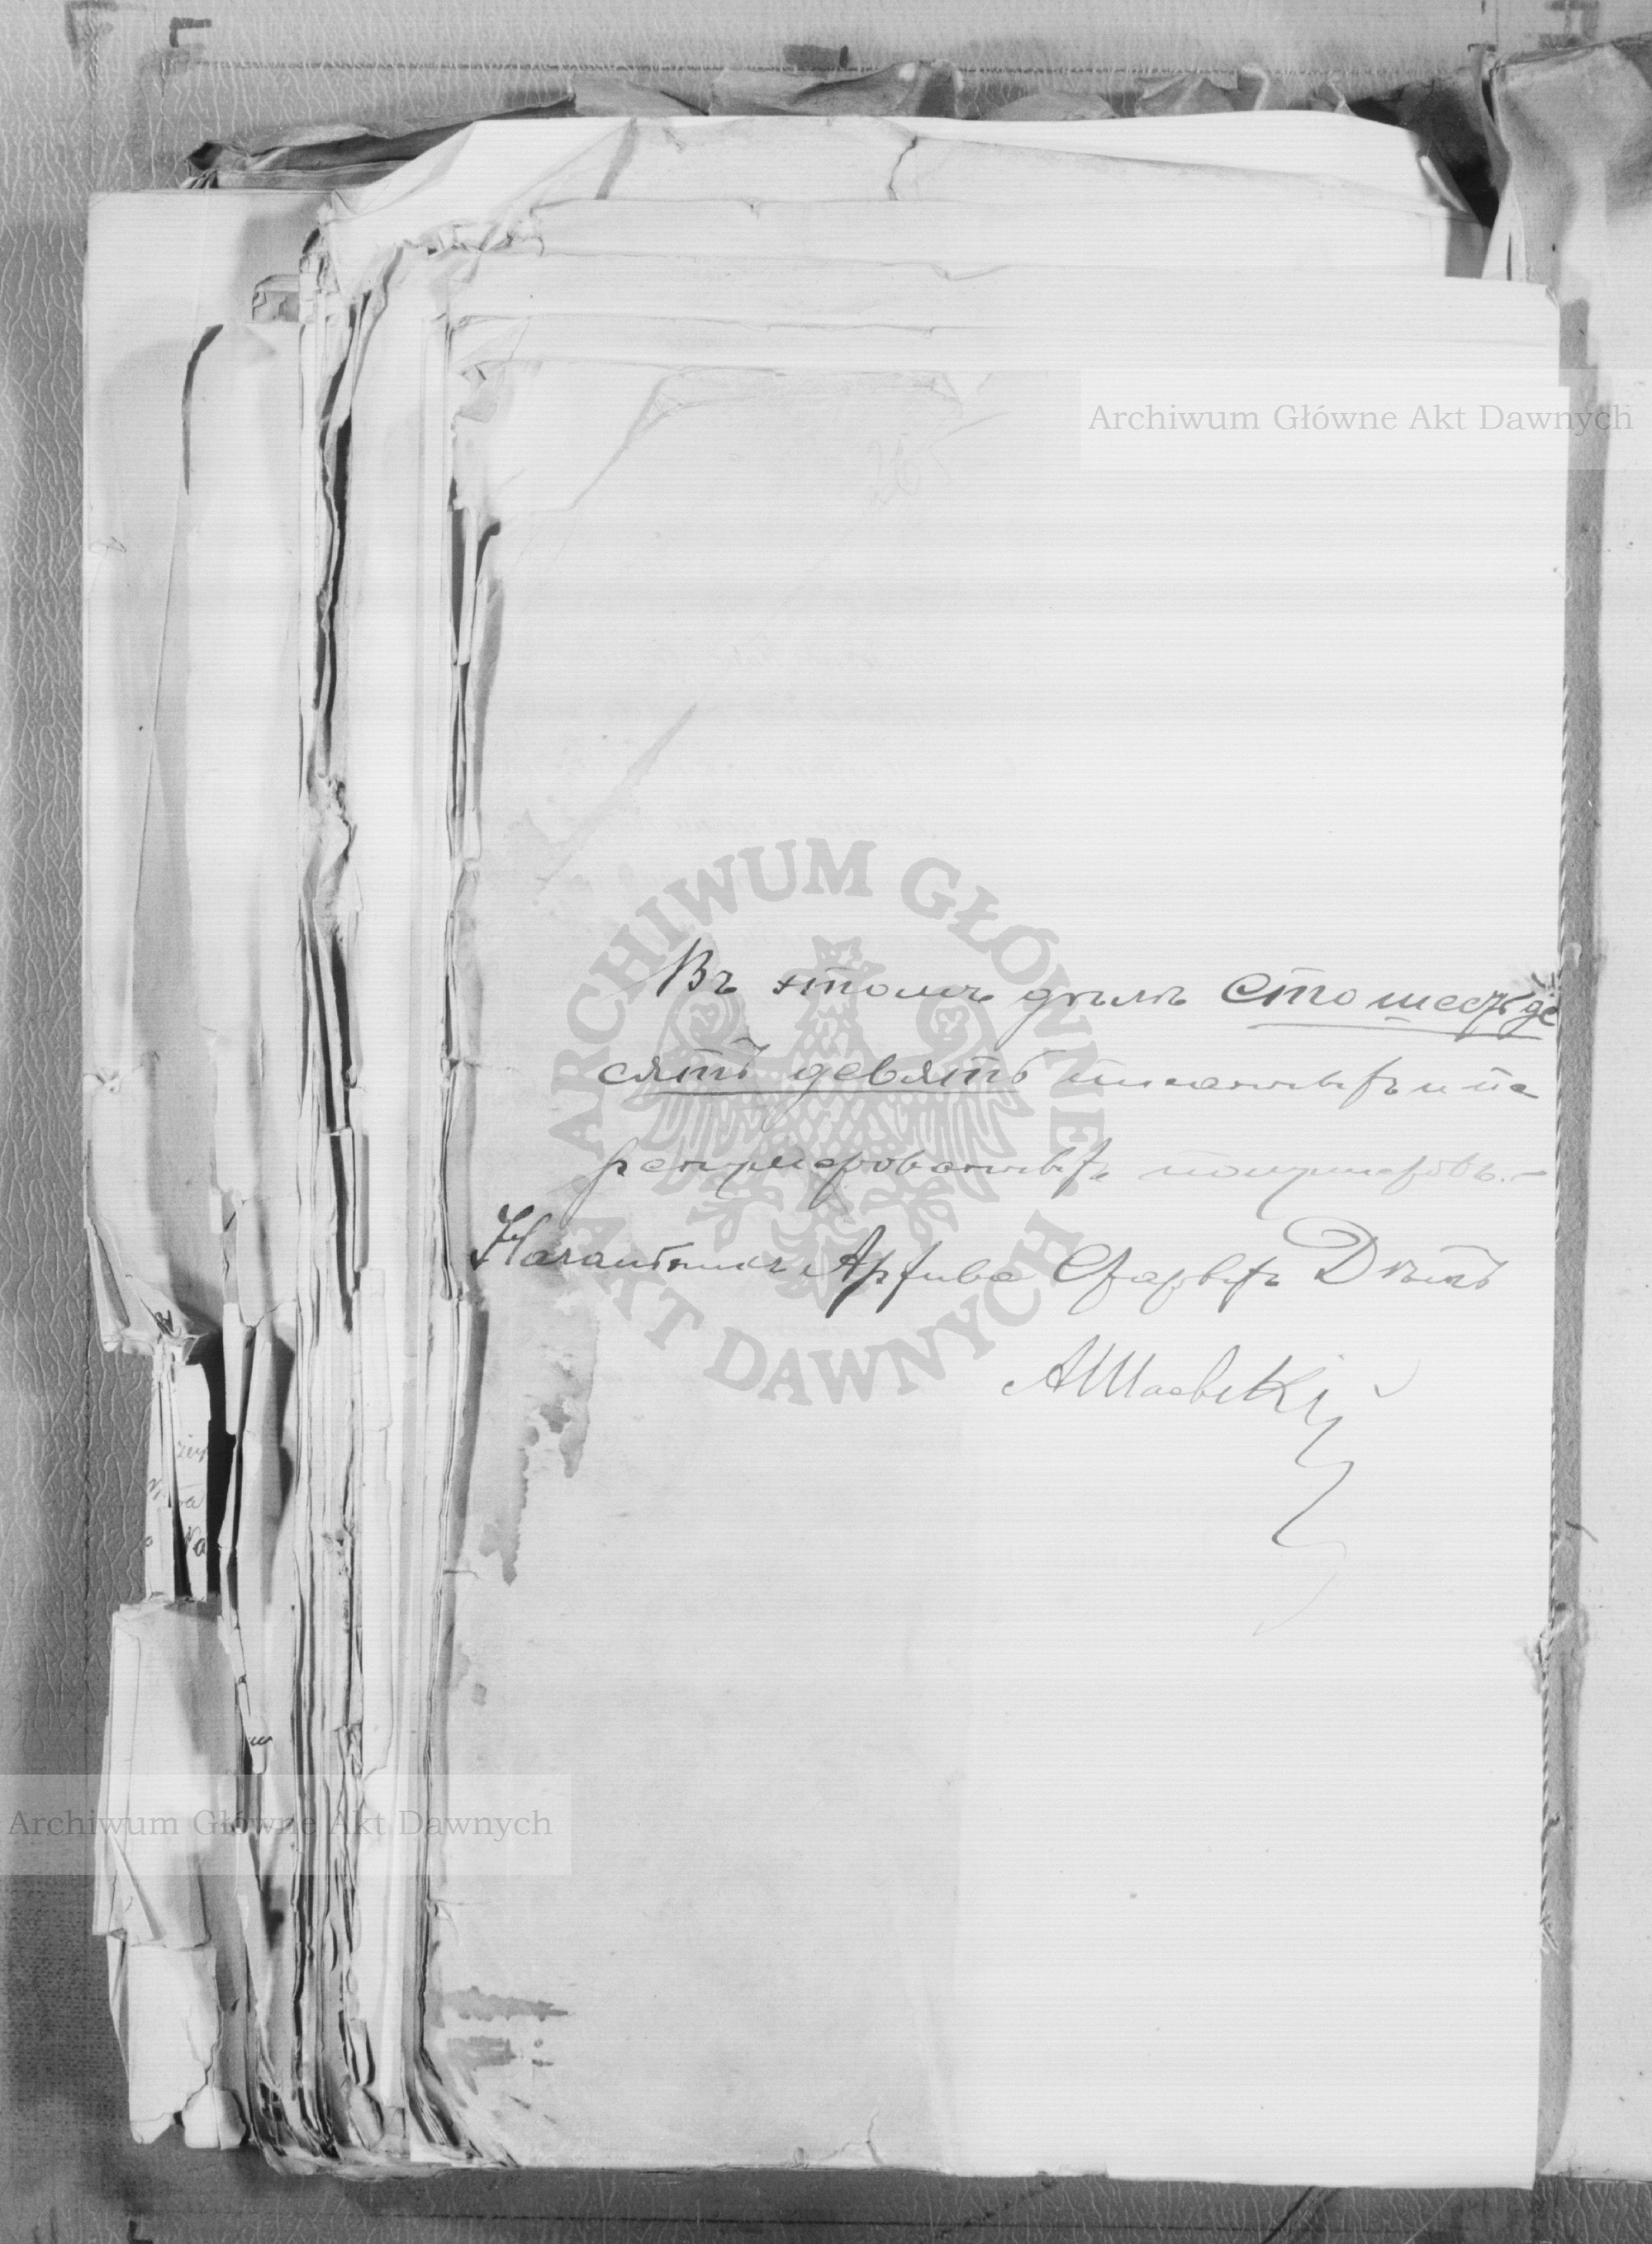 Archiwum Główne Akt Dawnych
ARCHIWUM GŁÓWNE
AKT DAWNYCH
Въ этомъ дѣлѣ сто шестьде
сятъ девять писанныхъ и па
рагумерованныхъ полулистовъ.
Начальникъ Архива Старыхъ Дѣлъ
Archiwum Główne Akt Dawnych